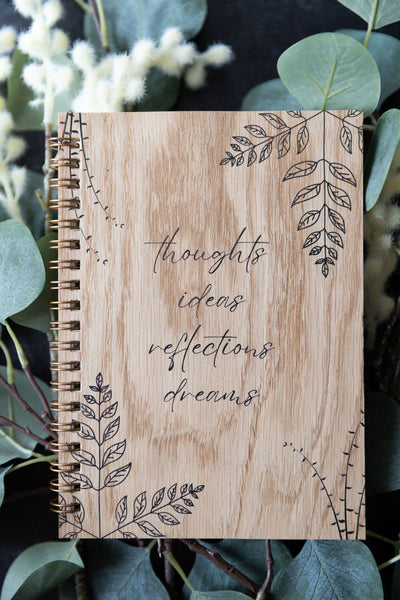 thoughts
ideas
reflections
dreams